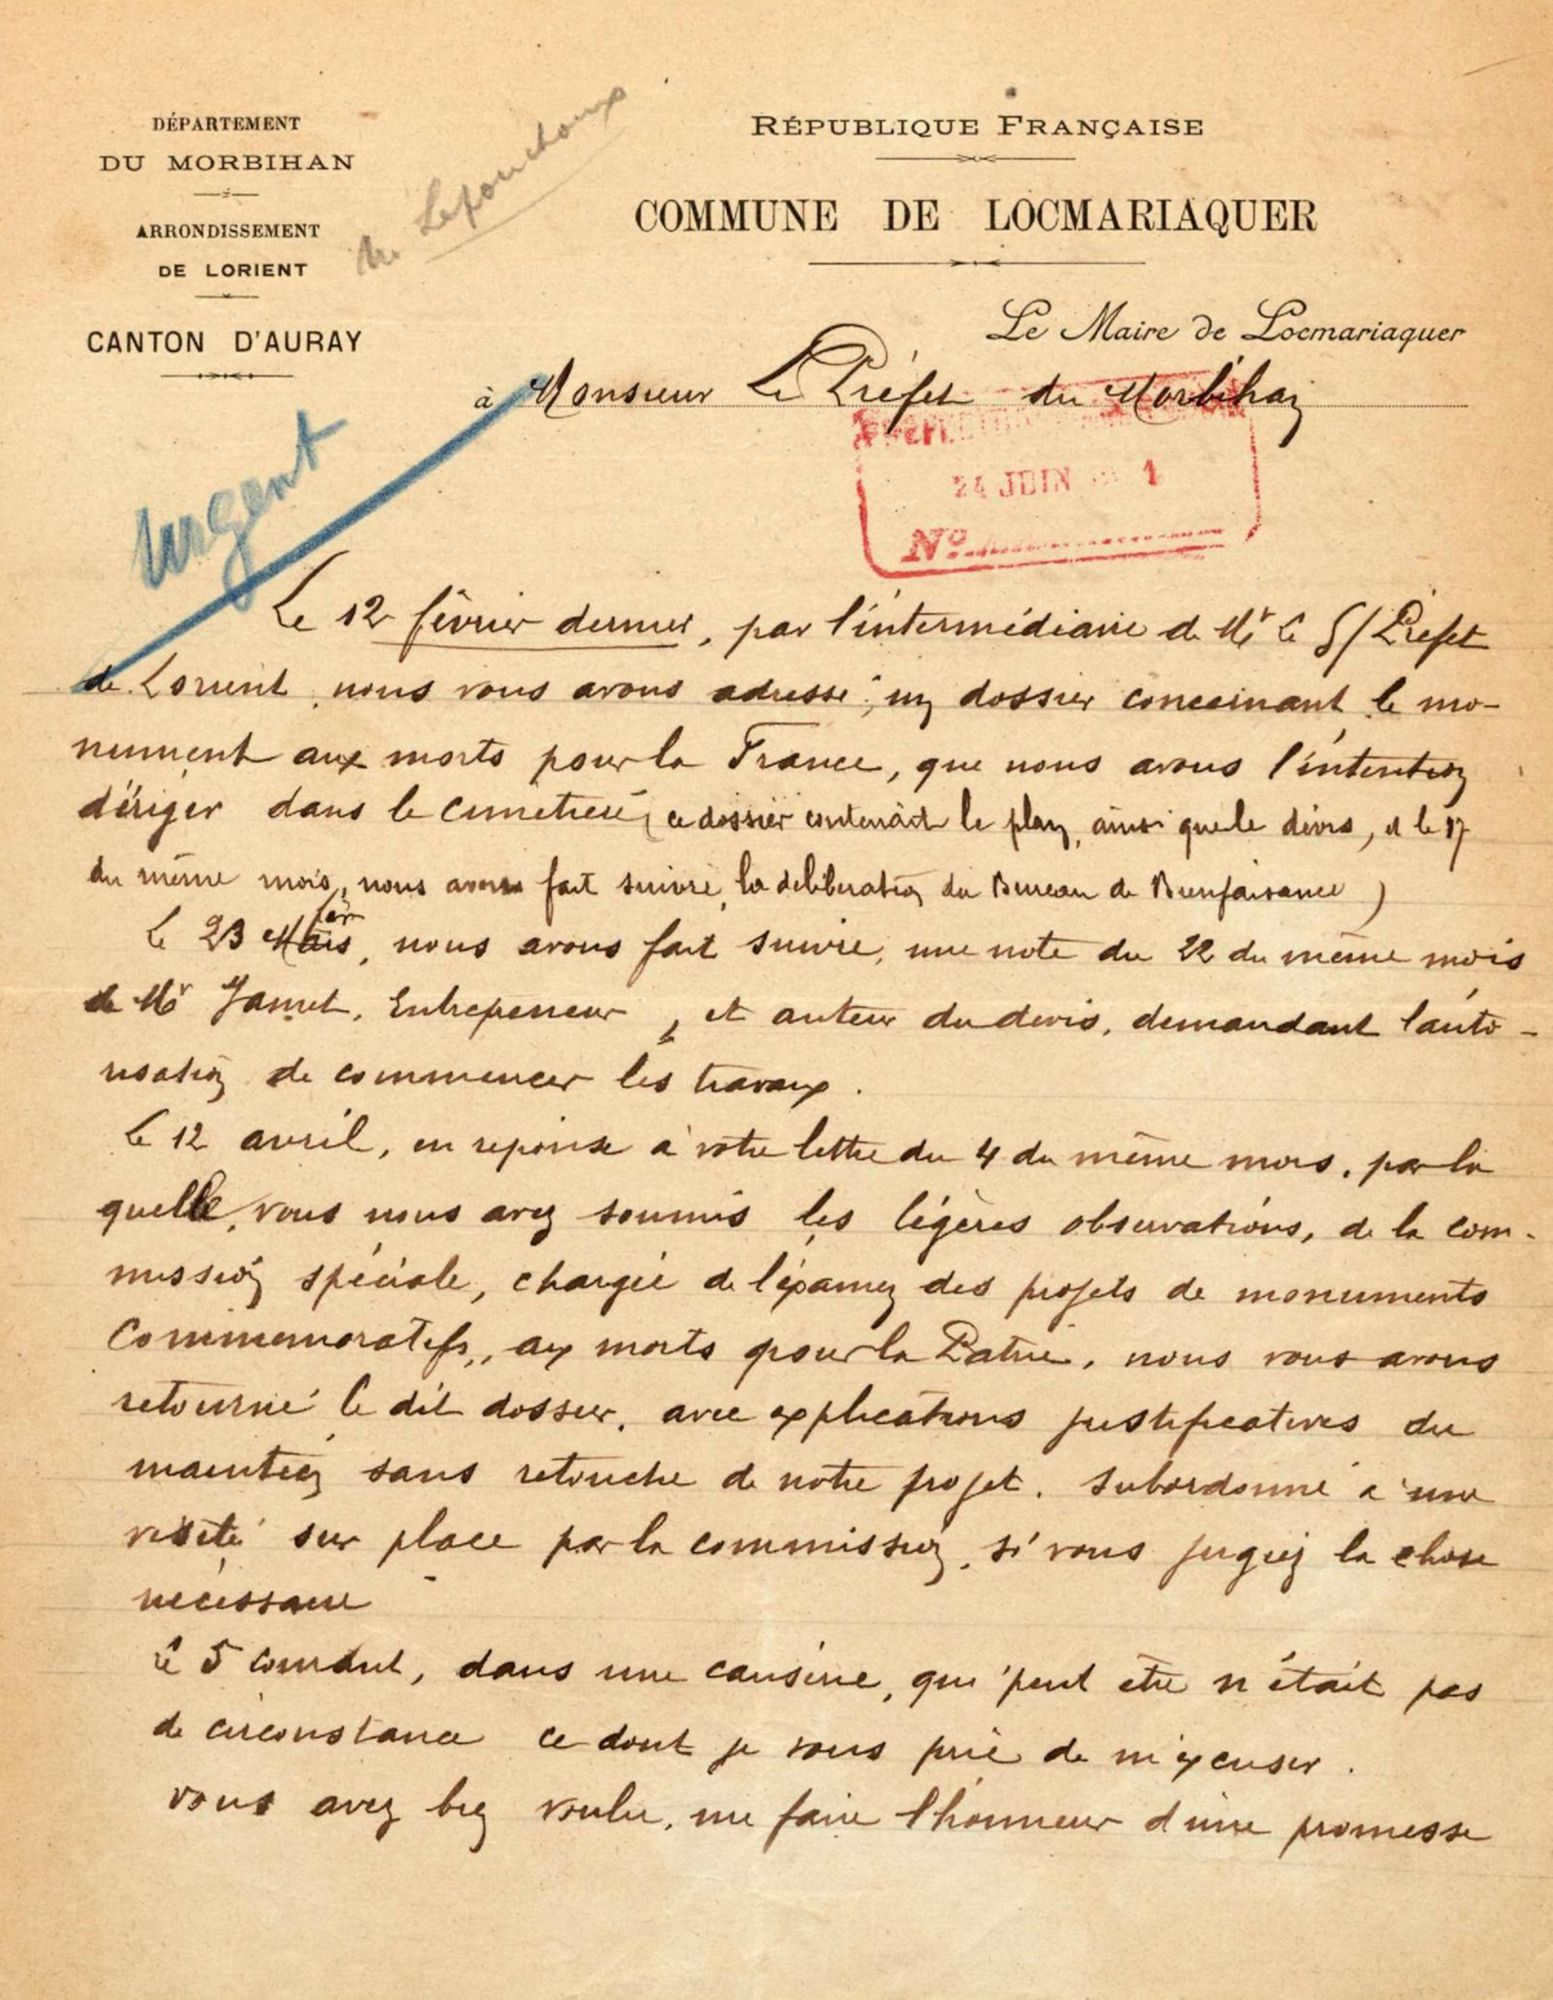 DÉPARTEMENT
DU MORBIHAN
ARRONDISSEMENT
DE LORIENT
CANTON D'AURAY
Mr Lepouchoux
RÉPUBLIQUE FRANÇAISE
COMMUNE DE LOCMARIAQUER
Le Maire de Locmariaquer
à Monsieur Le Préfet du Morbihan
24 JUIN 1
No
Urgent
Le 12 février dernier, par l'intermédiaire de Mr le S/Préfet
de Lorient, nous vous avons adressé, un dossier concernant le mo-
nument aux morts pour la France, que nous avons l'intention
d'ériger dans le cimetière, (ce dossier contenait le plan, ainsi que le devis, et le 17
du même mois, nous avons fait suivre, la délibération du Bureau de Bienfaisance)
Le 23 Mars, nous avons fait suivre, une note du 22 du même mois
de Mr Jamet, Entrepreneur, et auteur du devis, demandant l'auto-
risation de commencer les travaux.
Le 12 avril, en reponse à votre lettre du 4 du même mois, par la
quelle, vous nous avez soumis les légères observations, de la com-
mission spéciale, chargée de l'examen des projets de monuments
Commemoratifs, aux morts pour la Patrie, nous vous avons
retourné le dit dossier, avec explications justificatives du
maintien sans retouche de notre projet. Subordonné à une
visite sur place par la commission, si vous jugiez la chose
nécessaire
Le 5 courant, dans une causerie, qui peut être n'était pas
de circonstance ce dont je vous prie de m'excuser.
Vous avez bien voulu, me faire l'honneur d'une promesse